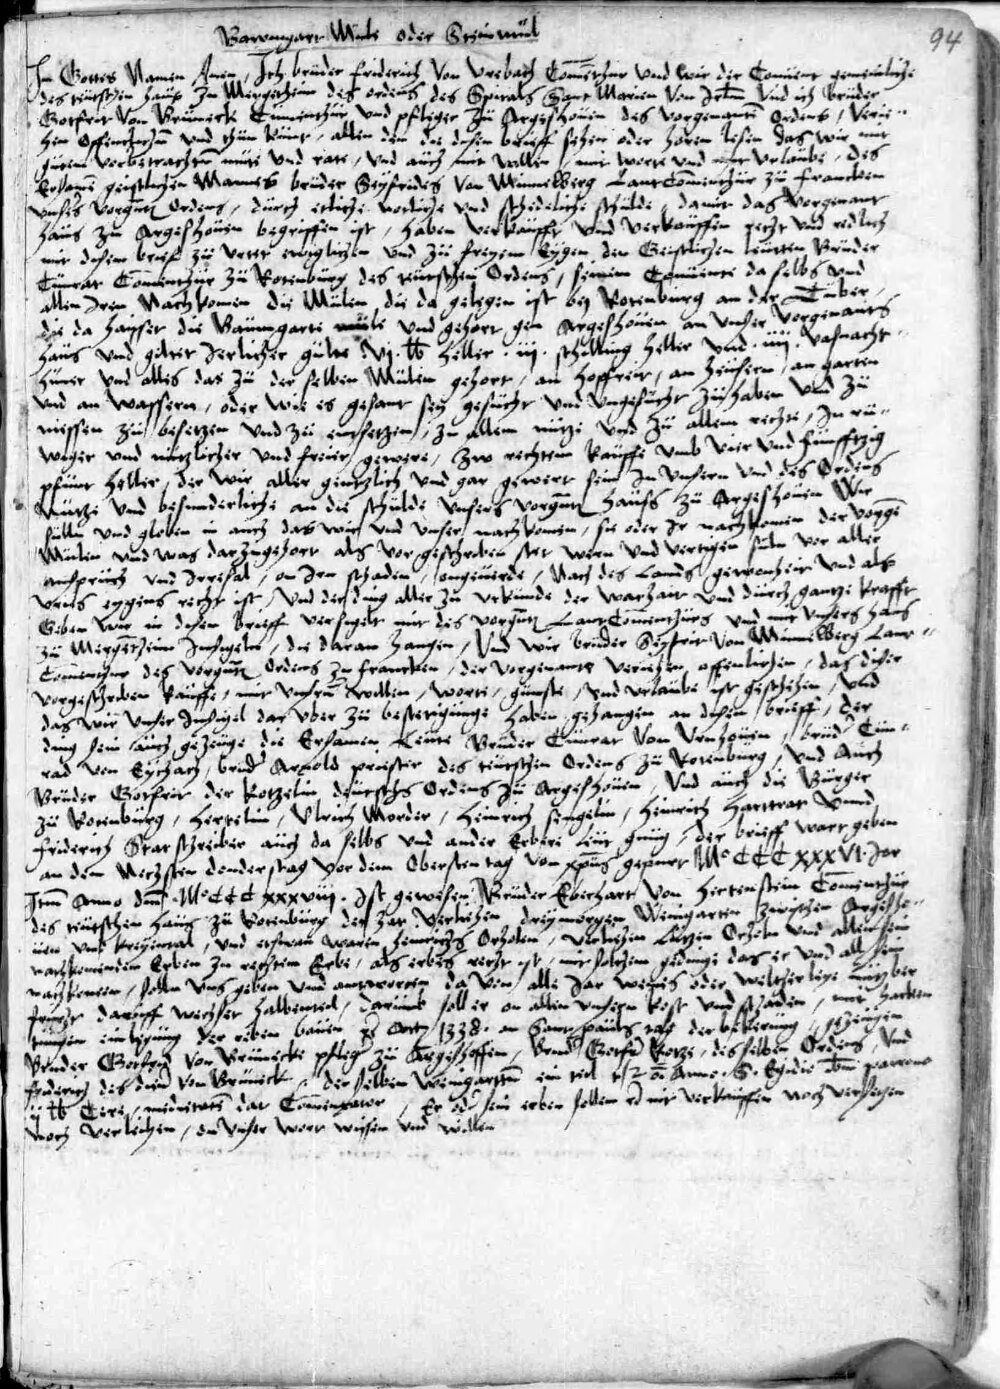 94
Bawmgart Mule oder Steinmül
In Gottes Namen Amen, Ich brüder Friderich von Vrebach Comenthur vnd wir der Conuent gemeinliche
des teutschen hauß zu Mergetheim des ordens des Spitals Sant Marien von Jrlm vnd ich brüder
Gotfrit von Brüneck Comenthür vnd pfleger zu Argeßhouen des vorgenanten Ordens, verie-
hen offentlichen vnd thün künt, allen den die disen brieff sehen oder horen lesen das wir mit
gutem vorbetrachten müte vnd rate, vnd auch mit willen, mit worte vnd mit vrlaube, des
Ersamen geistlichen Mannes brüder Seyfrides von Winnelberg LantComenthür zu Francken
vnsers vorgntn Ordens, durch etliche notliche vnd schedeliche schulde, damit das vorgenant
hauß zu Argeßhouen begriffen ist, haben verkaufft vnd verkauffen recht vnd redlich
mit disem brieff zu vrtet ewiglichen vnd zu freyem Eygen den Geistlichen leutten Brüder
Cünrat Comenthür zu Rotenburg des teutschen Ordens, seinem Conuente da selbs vnd
allen Iren Nachkomen die Mülen die da gelegen ist bey Rotenburg an der Tuber,
die da haysset die Baumgarte müle vnd gehort gen Argeßhouen an vnser vorgenants
hauß vnd giltet Jerlicher gulte .vj. lb heller .iij. schilling heller vnd .iiij. vasnacht-
huner vnd alles das zu der selben Mülen gehort, an hoffreit, an heusern, an garten
vnd an wassern, oder wie es genant sey gesucht vnd vngesucht zuhaben vnd zu
niessen zu besetzen vnd zu entsetzen, zu allem nutze vnd zu allem rechte, In rü-
wiger vnd nutzlicher vnd freier gewere, zw rechtem kauffe vmb vier vnd funfftzig
pfunt heller, der wir aller gentzlich vnd gar gewert sein In vnsern vnd des Ordens
Nutze vnd besunderliche an die schulde vnsers vorgntn hauß zu Argeßhouen Wir
sullen vnd globen in auch das wir vnd vnser nachkomen, sie oder Ir nachkomen der vorgen
Mülen vnd was darzugehort als vor geschriben stet wern vnd vertigen suln vor aller
ansprüch vnd Irresal, on Iren schaden, ongeuerde, Nach des Lands gewonheit vnd als
vreis eygens recht ist, Vnd der ding aller zu vrkunde der warhait vnd durch gantze krafft
Geben wir in disen brieff versigelt mit des vorgntn LantComenthürs vnd mit vnsers hauß
zu Mergetheim Insigeln, die daran hangen, Vnd wir brüder Seyfrit von Winnelberg Lant-
Comenthur des vorgntn Ordens zu Francken, der vorgenante veriehen offenlichen, das diser
vorgeschriben kauffe, mit vnserm willen, worte, gunste, vnd vrlaube ist geschehen, vnd
das wir vnser Insigel dar vber zu bestetigunge haben gehangen an disen brieff, der
ding sein auch gezeuge die Ersamen Leute Brüder Cünrat von Vrnhouen, brüder Cün-
rad von Eychach, bruder Arnold priester des teutschen Ordens zu Rotenburg, vnd Auch
Brüder Gotfrit der Kotzelin deutschs Ordens zu Argeßhouen, Vnd auch die Burger
zu Rotenburg, Hertelin, Vlrich Morder, Heinrich Sengelin, Heinrich Hartrat vnnd
Friderich Statschreiber auch da selbs vnd ander Erbere leut gnüg, der brieff wart geben
an dem Nechsten donderstag vor dem Obersten tag von xpus gepurt M° CCC xxxVI. Jar
Item Anno dmi M° CCC xxxviij. Ist gewesen Brüder Eberhart von Hertenstein Comenthur
des teutschen hauß zu Rotenburg der hat verlihen dreymorgen Weingarten zwischen Argeßho-
uen vnd Preyental, vnd etschwan waren Heinrichs Ortolen, verlihen Lutzen Ortoln vnd allen sein
nachkomenden Erben zu rechtem Erbe, als erbes recht ist, mit solchem gedinge das er vnd all sein
nachkomen, sollen vns geben vnd antworten da von, alle Jar weines oder weltherleye nutzber
frucht daruff wechset halbenteil, darumb soll er on allen vnsern kost vnd schaden, mit hacken
tungen einlegung der reben bawen. Act. 1338. an Sant Pauls tag der bekerung, gezeugen
Bruder Gotfrid von Brünecke pfleg zu Argeßhoffen, Brud Gotfrid Kotze, des selben Ordens, vnd
Frderich des dien von Brüneck, der selben Weingartten ein teil
ij lb Cere, medietatem dat Comentator, Er od sein erben sollen es nit verkauffen noch versetzen
noch verleihen, on vnser wort wissen vnd willen